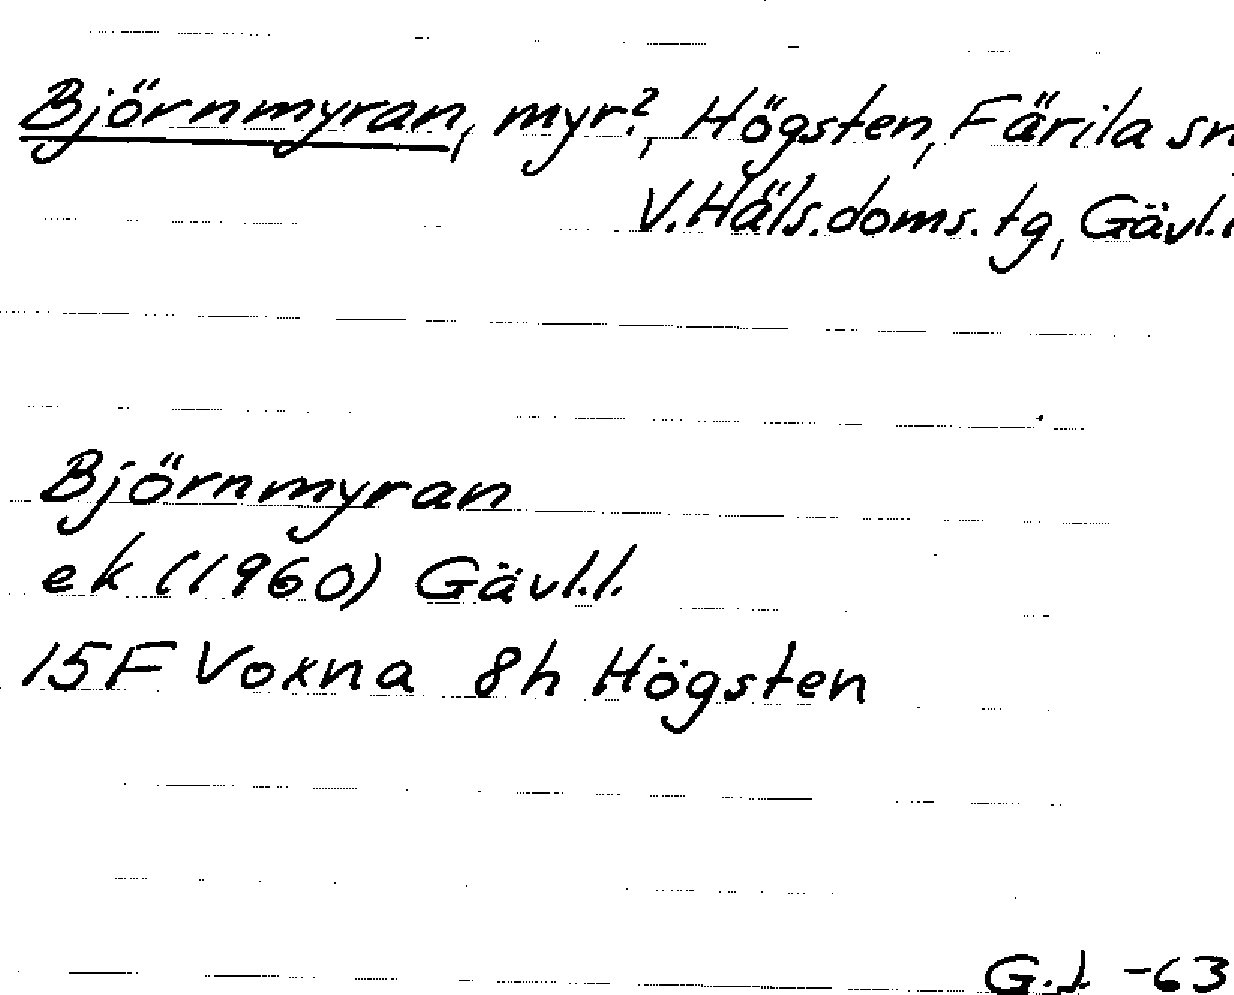 Björnmyran, myr?, Högsten, Färila sn
V.Häls.doms.tg, Gävl.l
Björnmyran
ek (1960) Gävl.l.
15F Voxna 8h Högsten
G.J -63